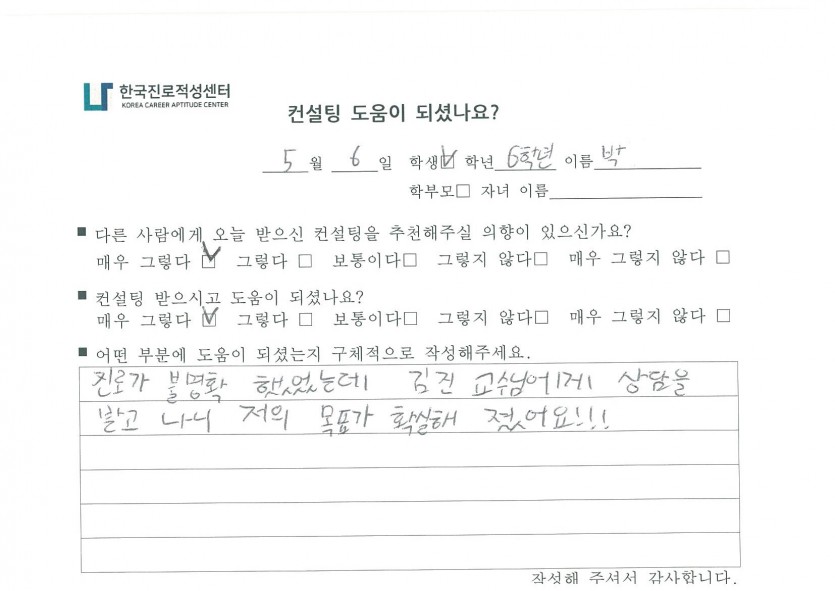 한국진로적성센터
KOREA CAREER APTITUDE CENTER
컨설팅 도움이 되셨나요?
5 월 6 일 학생☑ 학년 6학년 이름 박
학부모□ 자녀 이름
■ 다른 사람에게 오늘 받으신 컨설팅을 추천해주실 의향이 있으신가요?
매우 그렇다 ☑ 그렇다 □ 보통이다□ 그렇지 않다□ 매우 그렇지 않다 □
■ 컨설팅 받으시고 도움이 되셨나요?
매우 그렇다 ☑ 그렇다 □ 보통이다□ 그렇지 않다□ 매우 그렇지 않다 □
■ 어떤 부분에 도움이 되셨는지 구체적으로 작성해주세요.
진로가 불명확 했었는데 김진 교수님에게 상담을
받고 나니 저의 목표가 확실해 졌어요!!!
작성해 주셔서 감사합니다.